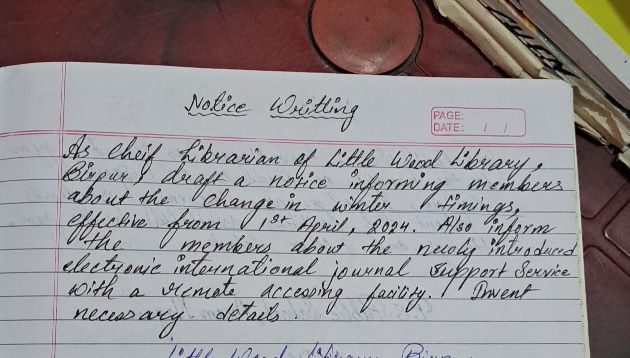 Notice Writting
PAGE:
DATE: / /
As Cheif Librarian of Little Wood Library,
Birpur, draft a notice informing members
about the change in winter timings,
effective from 1st April, 2024. Also inform
the members about the newly introduced
electronic international journal support Service
with a remote accessing facility. Invent
necessary details.
Little Wood Library, Birpur